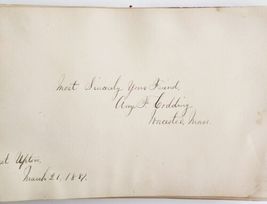 Most Sincerely Your Friend,
F. Codding
Worcester, Mass.
st Upton
March 21, 18